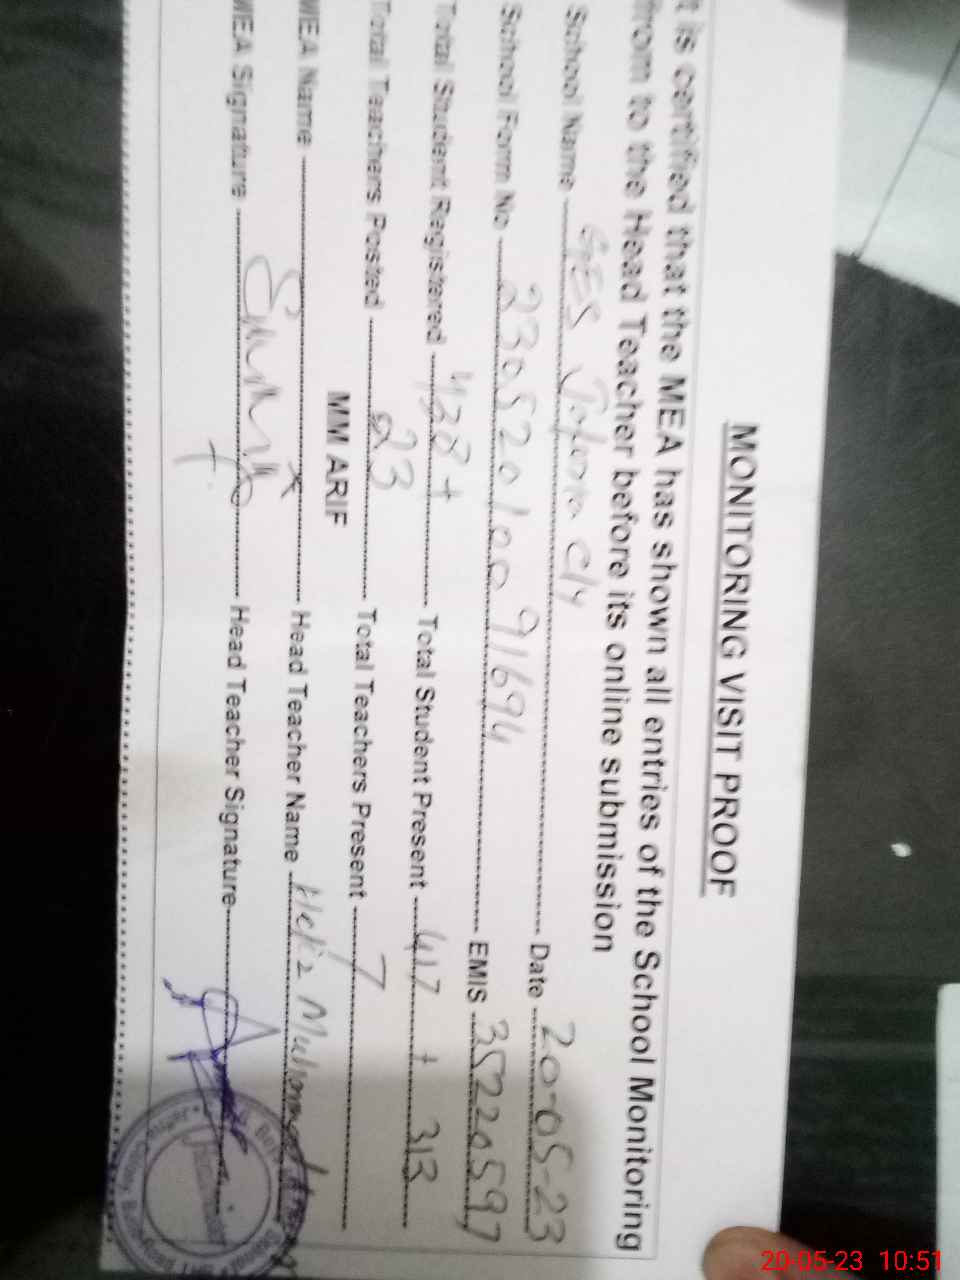 MONITORING VISIT PROOF
t is certified that the MEA has shown all entries of the School Monitoring
from to the Head Teacher before its online submission
School Name GES Date 20-05-23
School Form No 23052010091694 EMIS 35220597
Total Student Registered 438+ Total Student Present 417 + 313
Total Teachers Posted 23 Total Teachers Present 7
MM ARIF
MEA Name Head Teacher Name Hafiz Muhammad
MEA Signature Head Teacher Signature
20-05-23 10:51